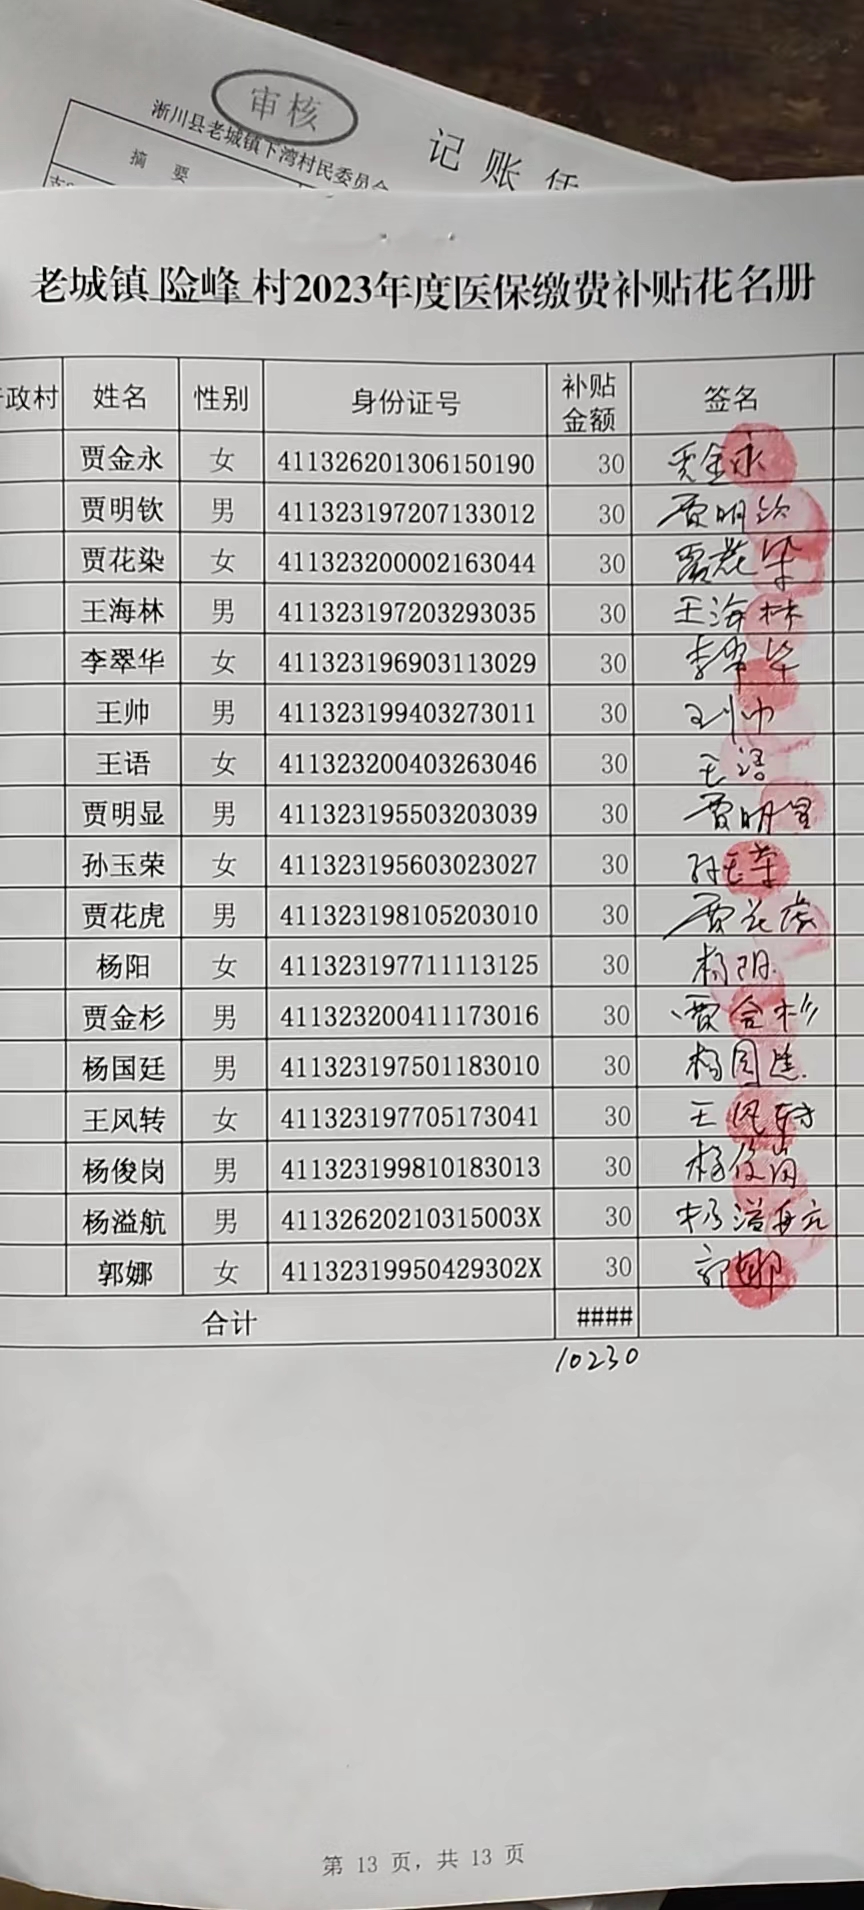 审核
淅川县老城镇下湾村民委员会
记账
摘要
老城镇 险峰 村2023年度医保缴费补贴花名册
政村 姓名 性别 身份证号 补贴金额 签名
贾金永 女 411326201306150190 30 贾金永
贾明钦 男 411323197207133012 30 贾明钦
贾花染 女 411323200002163044 30 贾花染
王海林 男 411323197203293035 30 王海林
李翠华 女 411323196903113029 30 李翠华
王帅 男 411323199403273011 30 王帅
王语 女 411323200403263046 30 王语
贾明显 男 411323195503203039 30 贾明显
孙玉荣 女 411323195603023027 30 孙玉荣
贾花虎 男 411323198105203010 30 贾花虎
杨阳 女 411323197711113125 30 杨阳
贾金杉 男 411323200411173016 30 贾金杉
杨国廷 男 411323197501183010 30 杨国廷
王风转 女 411323197705173041 30 王风转
杨俊岗 男 411323199810183013 30 杨俊岗
杨溢航 男 41132620210315003X 30 杨溢航
郭娜 女 41132319950429302X 30 郭娜
合计 ####
10230
第 13 页，共 13 页